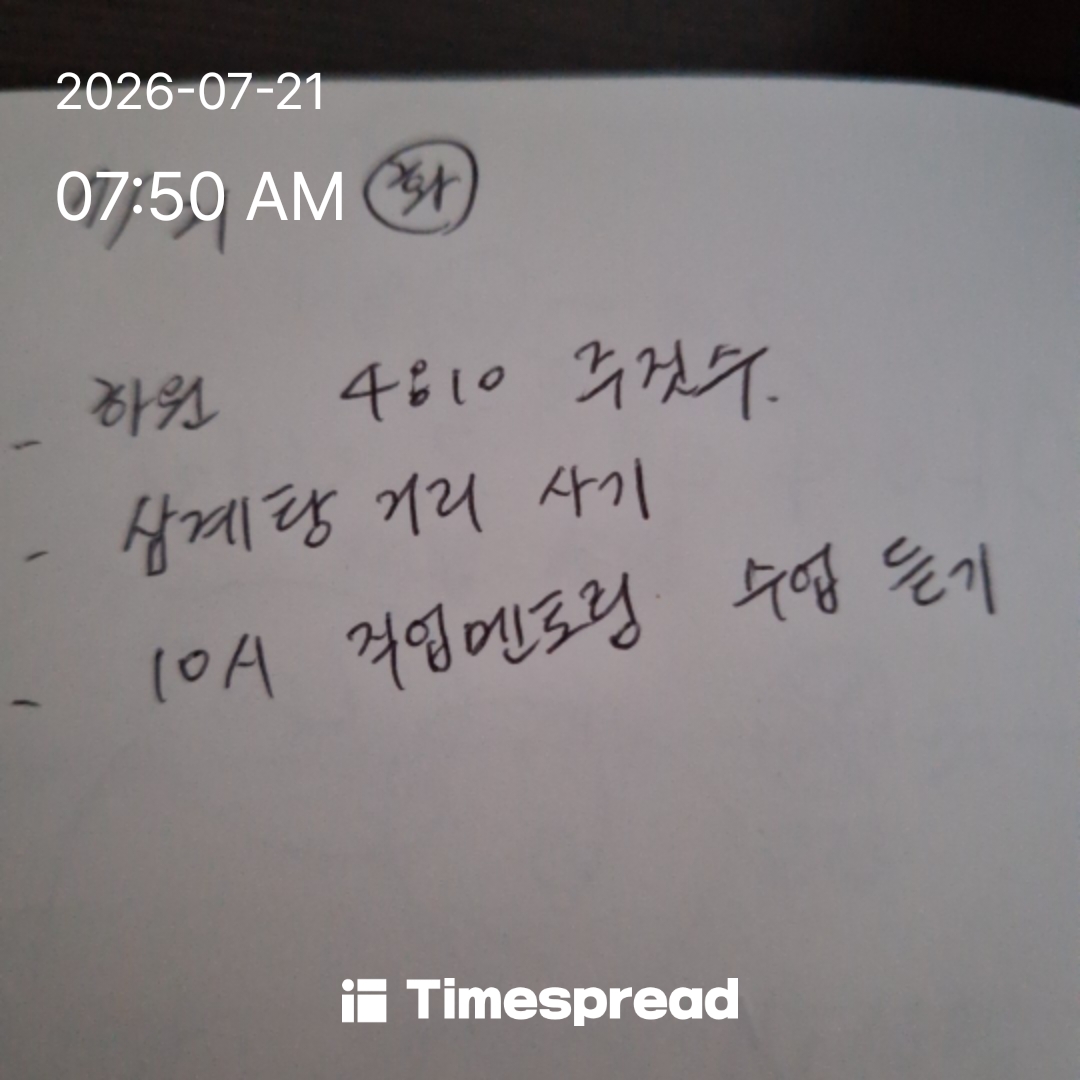 2026-07-21
07:50 AM
화
- 하원 4:10 주짓수.
- 삼계탕 거리 사기
- 10시 직업멘토링 수업 듣기
Timespread